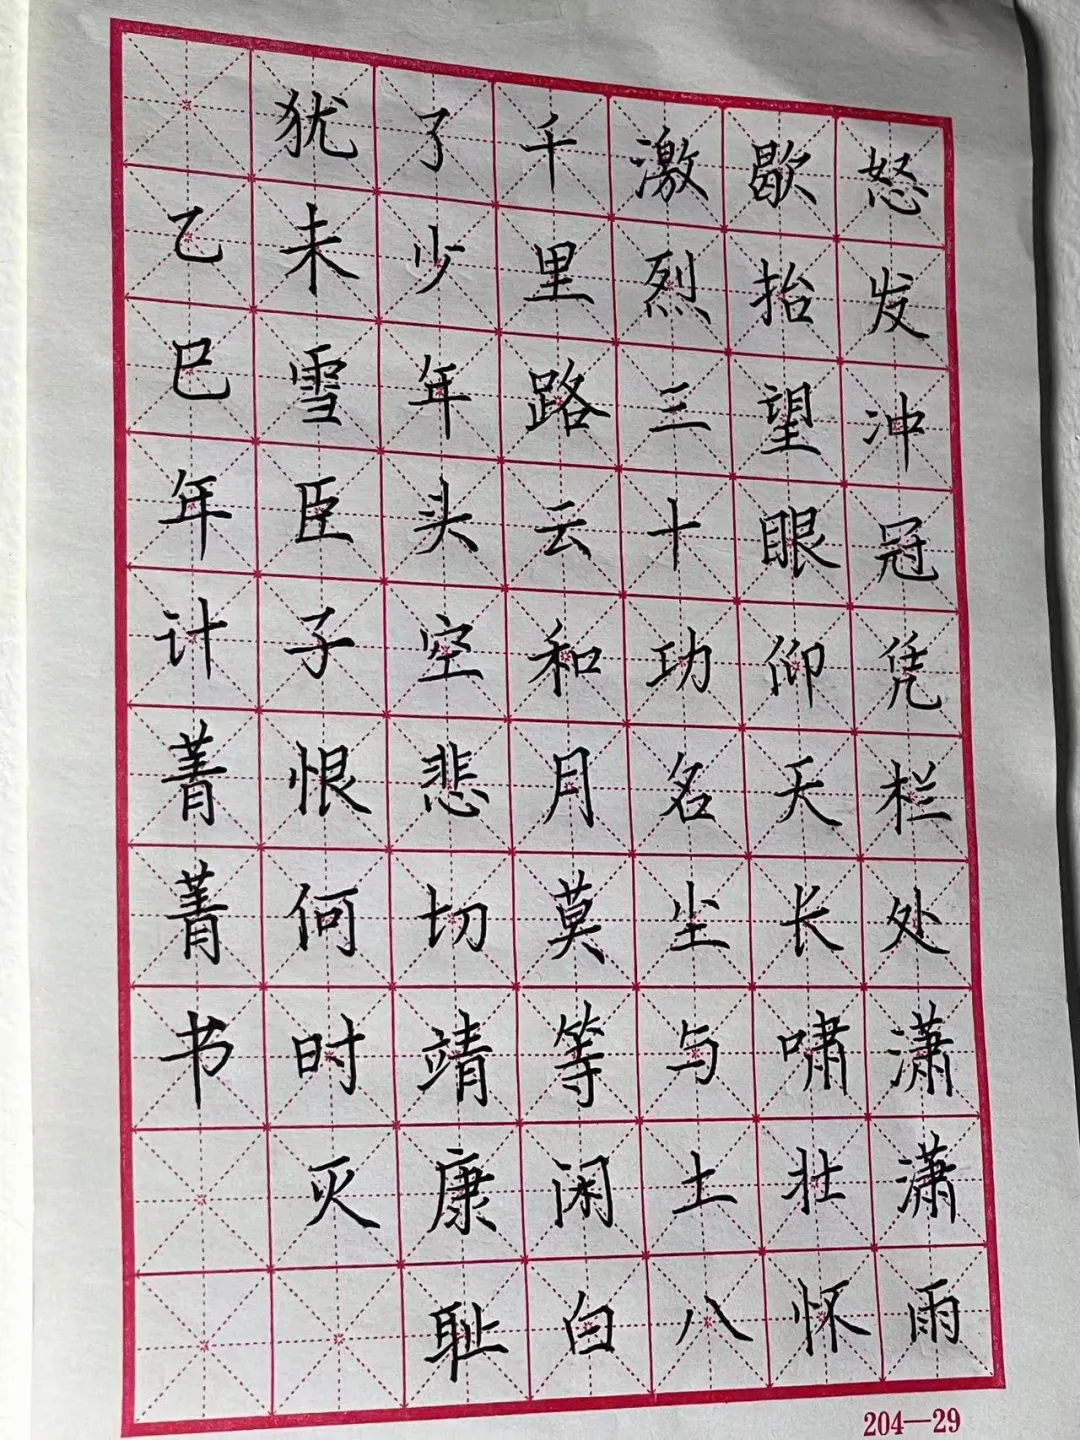 怒发冲冠凭栏处潇潇雨
歇抬望眼仰天长啸壮怀
激烈三十功名尘与土八
千里路云和月莫等闲白
了少年头空悲切靖康耻
犹未雪臣子恨何时灭
乙巳年计菁菁书
204—29